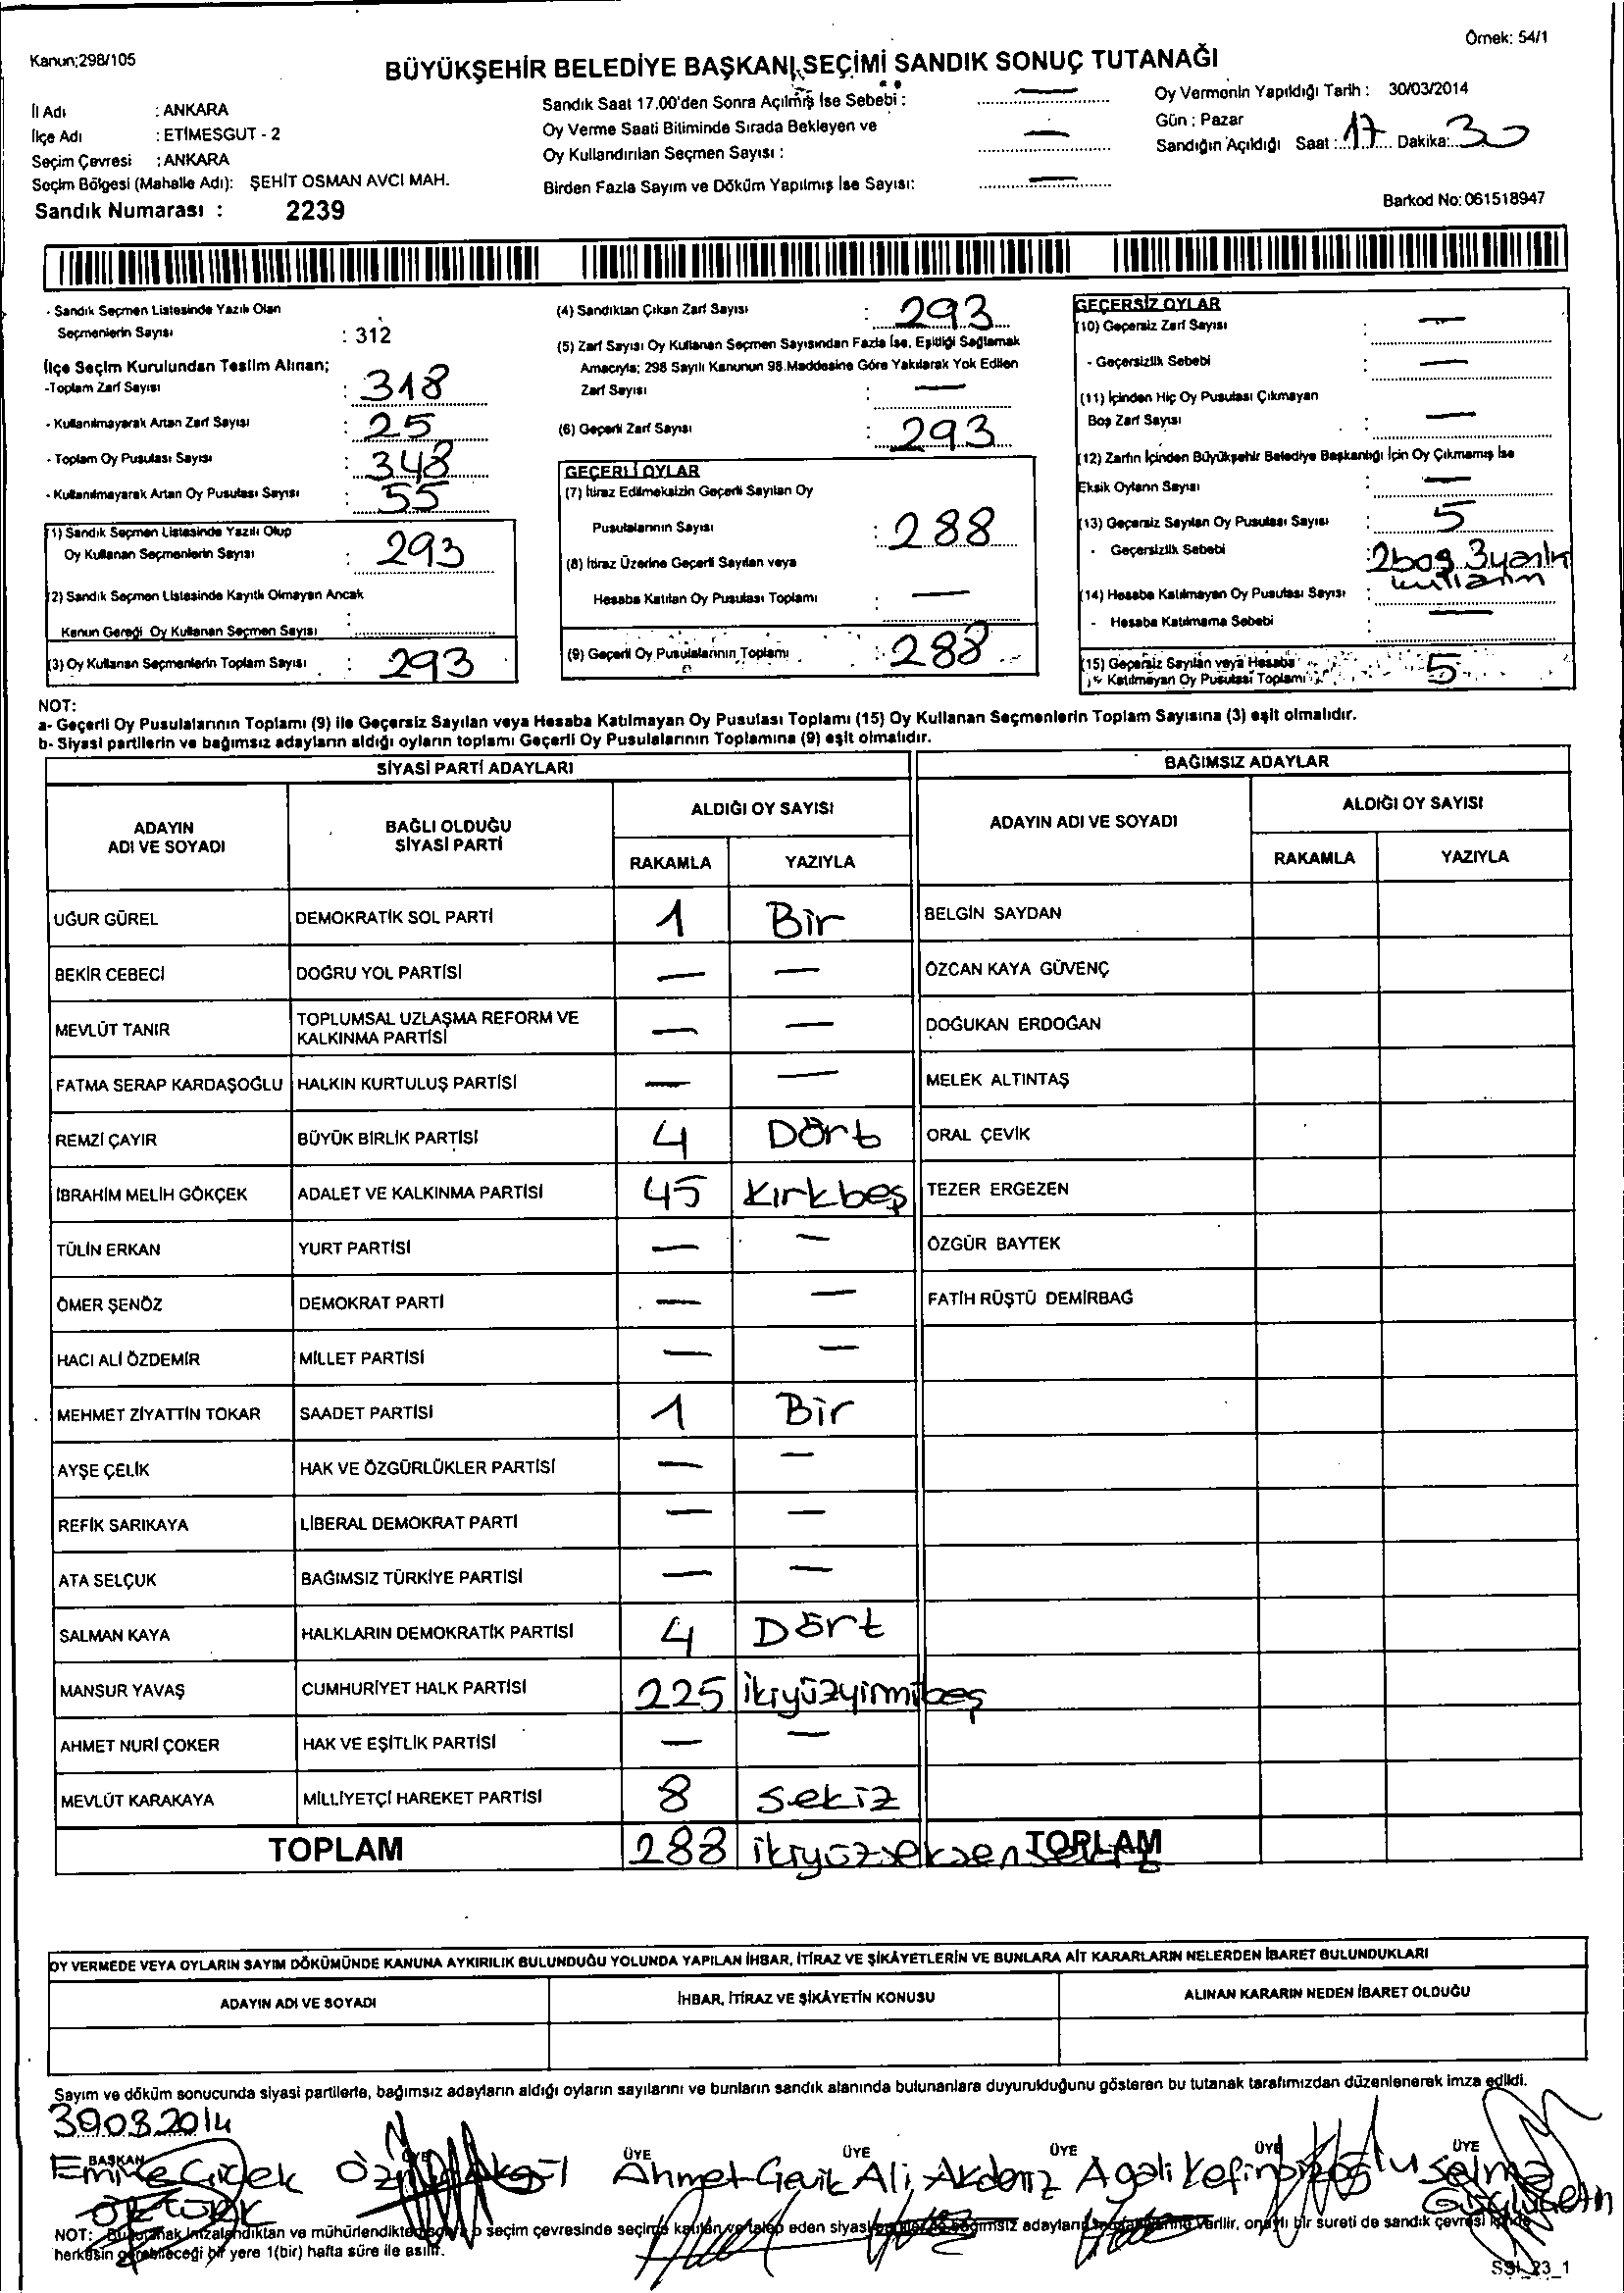 Kanun;298/105
Örnek: 54/1
BÜYÜKŞEHİR BELEDİYE BAŞKANI SEÇİMİ SANDIK SONUÇ TUTANAĞI
İl Adı : ANKARA
İlçe Adı : ETİMESGUT - 2
Seçim Çevresi : ANKARA
Seçim Bölgesi (Mahalle Adı): ŞEHİT OSMAN AVCI MAH.
Sandık Numarası : 2239
Sandık Saat 17.00'den Sonra Açılmış İse Sebebi : —
Oy Verme Saati Bitiminde Sırada Bekleyen ve
Oy Kullandırılan Seçmen Sayısı : —
Birden Fazla Sayım ve Döküm Yapılmış İse Sayısı: —
Oy Vermenin Yapıldığı Tarih : 30/03/2014
Gün : Pazar
Sandığın Açıldığı Saat : 17 Dakika: 30
Barkod No: 061518947
- Sandık Seçmen Listesinde Yazılı Olan
Seçmenlerin Sayısı : 312
İlçe Seçim Kurulundan Teslim Alınan;
-Toplam Zarf Sayısı : 318
- Kullanılmayarak Artan Zarf Sayısı : 25
- Toplam Oy Pusulası Sayısı : 348
- Kullanılmayarak Artan Oy Pusulası Sayısı : 55
(1) Sandık Seçmen Listesinde Yazılı Olup
Oy Kullanan Seçmenlerin Sayısı : 293
(2) Sandık Seçmen Listesinde Kayıtlı Olmayan Ancak
Kanun Gereği Oy Kullanan Seçmen Sayısı :
(3) Oy Kullanan Seçmenlerin Toplam Sayısı : 293
(4) Sandıktan Çıkan Zarf Sayısı : 293
(5) Zarf Sayısı Oy Kullanan Seçmen Sayısından Fazla İse, Eşitliği Sağlamak
Amacıyla; 298 Sayılı Kanunun 98.Maddesine Göre Yakılarak Yok Edilen
Zarf Sayısı : —
(6) Geçerli Zarf Sayısı : 293
GEÇERLİ OYLAR
(7) İtiraz Edilmeksizin Geçerli Sayılan Oy
Pusulalarının Sayısı : 288
(8) İtiraz Üzerine Geçerli Sayılan veya
Hesaba Katılan Oy Pusulası Toplamı : —
(9) Geçerli Oy Pusulalarının Toplamı : 288
GEÇERSİZ OYLAR
(10) Geçersiz Zarf Sayısı : —
- Geçersizlik Sebebi : —
(11) İçinden Hiç Oy Pusulası Çıkmayan
Boş Zarf Sayısı : —
(12) Zarfın İçinden Büyükşehir Belediye Başkanlığı İçin Oy Çıkmamış İse
Eksik Oyların Sayısı : —
(13) Geçersiz Sayılan Oy Pusulası Sayısı : 5
- Geçersizlik Sebebi : 2boş 3yanlış
kullanım
(14) Hesaba Katılmayan Oy Pusulası Sayısı :
- Hesaba Katılmama Sebebi : —
(15) Geçersiz Sayılan veya Hesaba
Katılmayan Oy Pusulası Toplamı : 5
NOT:
a- Geçerli Oy Pusulalarının Toplamı (9) ile Geçersiz Sayılan veya Hesaba Katılmayan Oy Pusulası Toplamı (15) Oy Kullanan Seçmenlerin Toplam Sayısına (3) eşit olmalıdır.
b- Siyasi partilerin ve bağımsız adayların aldığı oyların toplamı Geçerli Oy Pusulalarının Toplamına (9) eşit olmalıdır.
SİYASİ PARTİ ADAYLARI BAĞIMSIZ ADAYLAR
ADAYIN ADI VE SOYADI BAĞLI OLDUĞU SİYASİ PARTİ ALDIĞI OY SAYISI ADAYIN ADI VE SOYADI ALDIĞI OY SAYISI
RAKAMLA YAZIYLA RAKAMLA YAZIYLA
UĞUR GÜREL DEMOKRATİK SOL PARTİ 1 Bir BELGİN SAYDAN
BEKİR CEBECİ DOĞRU YOL PARTİSİ — — ÖZCAN KAYA GÜVENÇ
MEVLÜT TANIR TOPLUMSAL UZLAŞMA REFORM VE KALKINMA PARTİSİ — — DOĞUKAN ERDOĞAN
FATMA SERAP KARDAŞOĞLU HALKIN KURTULUŞ PARTİSİ — — MELEK ALTINTAŞ
REMZİ ÇAYIR BÜYÜK BİRLİK PARTİSİ 4 Dört ORAL ÇEVİK
İBRAHİM MELİH GÖKÇEK ADALET VE KALKINMA PARTİSİ 45 Kırkbeş TEZER ERGEZEN
TÜLİN ERKAN YURT PARTİSİ — — ÖZGÜR BAYTEK
ÖMER ŞENÖZ DEMOKRAT PARTİ — — FATİH RÜŞTÜ DEMİRBAĞ
HACI ALİ ÖZDEMİR MİLLET PARTİSİ — —
MEHMET ZİYATTİN TOKAR SAADET PARTİSİ 1 Bir
AYŞE ÇELİK HAK VE ÖZGÜRLÜKLER PARTİSİ — —
REFİK SARIKAYA LİBERAL DEMOKRAT PARTİ — —
ATA SELÇUK BAĞIMSIZ TÜRKİYE PARTİSİ — —
SALMAN KAYA HALKLARIN DEMOKRATİK PARTİSİ 4 Dört
MANSUR YAVAŞ CUMHURİYET HALK PARTİSİ 225 ikiyüzyirmibeş
AHMET NURİ ÇOKER HAK VE EŞİTLİK PARTİSİ — —
MEVLÜT KARAKAYA MİLLİYETÇİ HAREKET PARTİSİ 8 Sekiz
TOPLAM 288 ikiyüzseksensekiz TOPLAM
OY VERMEDE VEYA OYLARIN SAYIM DÖKÜMÜNDE KANUNA AYKIRILIK BULUNDUĞU YOLUNDA YAPILAN İHBAR, İTİRAZ VE ŞİKÂYETLERİN VE BUNLARA AİT KARARLARIN NELERDEN İBARET BULUNDUKLARI
ADAYIN ADI VE SOYADI İHBAR, İTİRAZ VE ŞİKÂYETİN KONUSU ALINAN KARARIN NEDEN İBARET OLDUĞU
Sayım ve döküm sonucunda siyasi partilerle, bağımsız adayların aldığı oyların sayılarını ve bunların sandık alanında bulunanlara duyurulduğunu gösteren bu tutanak tarafımızdan düzenlenerek imza edildi.
30.03.2014
BAŞKAN ÜYE ÜYE ÜYE ÜYE ÜYE
Emine Çiçek Ahmet Ali Akdeniz Selma
Öztürk
NOT: Bu tutanak imzalandıktan ve mühürlendikten sonra o seçim çevresinde seçime katılan ve talep eden siyasi partiler ve bağımsız adayların verilir, onaylı bir sureti de sandık çevresi içinde
herkesin görebileceği bir yere 1(bir) hafta süre ile asılır.
SSI_23_1